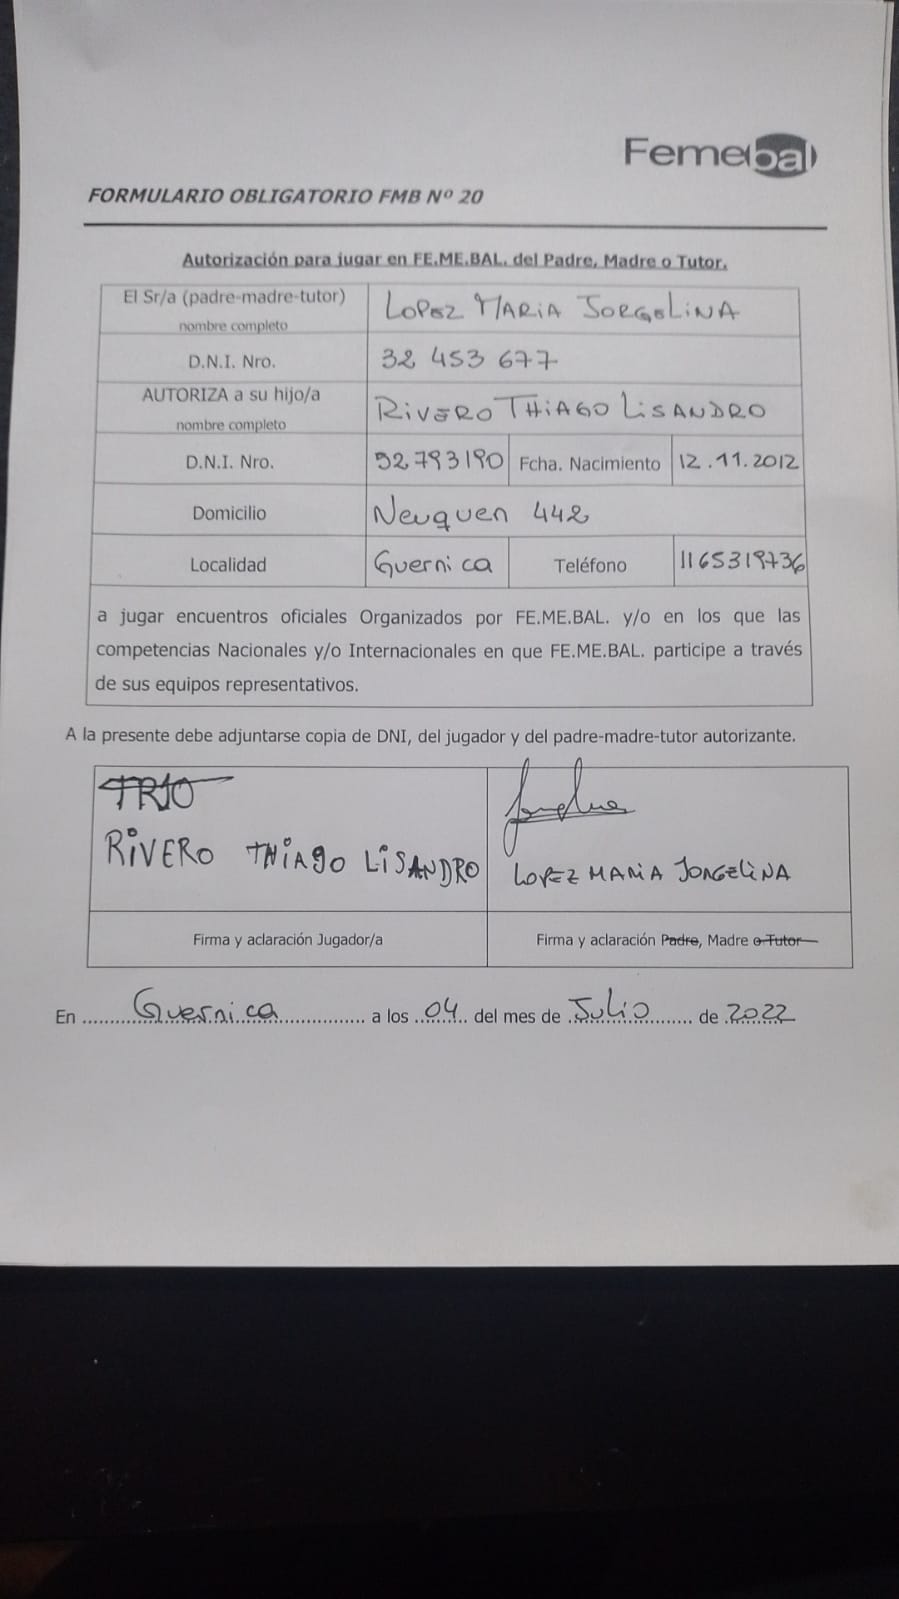 Femebal
FORMULARIO OBLIGATORIO FMB Nº 20
Autorización para jugar en FE.ME.BAL. del Padre, Madre o Tutor.
El Sr/a (padre-madre-tutor)
nombre completo
LOPEZ MARIA JORGELINA
D.N.I. Nro.
32 453 677
AUTORIZA a su hijo/a
nombre completo
RIVERO THIAGO LISANDRO
D.N.I. Nro.
52793190
Fcha. Nacimiento
12.11.2012
Domicilio
Neuquen 442
Localidad
Guernica
Teléfono
1165319736
a jugar encuentros oficiales Organizados por FE.ME.BAL. y/o en los que las
competencias Nacionales y/o Internacionales en que FE.ME.BAL. participe a través
de sus equipos representativos.
A la presente debe adjuntarse copia de DNI, del jugador y del padre-madre-tutor autorizante.
RIVERO THIAGO LISANDRO
LOPEZ MARIA JORGELINA
Firma y aclaración Jugador/a
Firma y aclaración Padre, Madre o Tutor
En Guernica a los 04 del mes de Julio de 2022